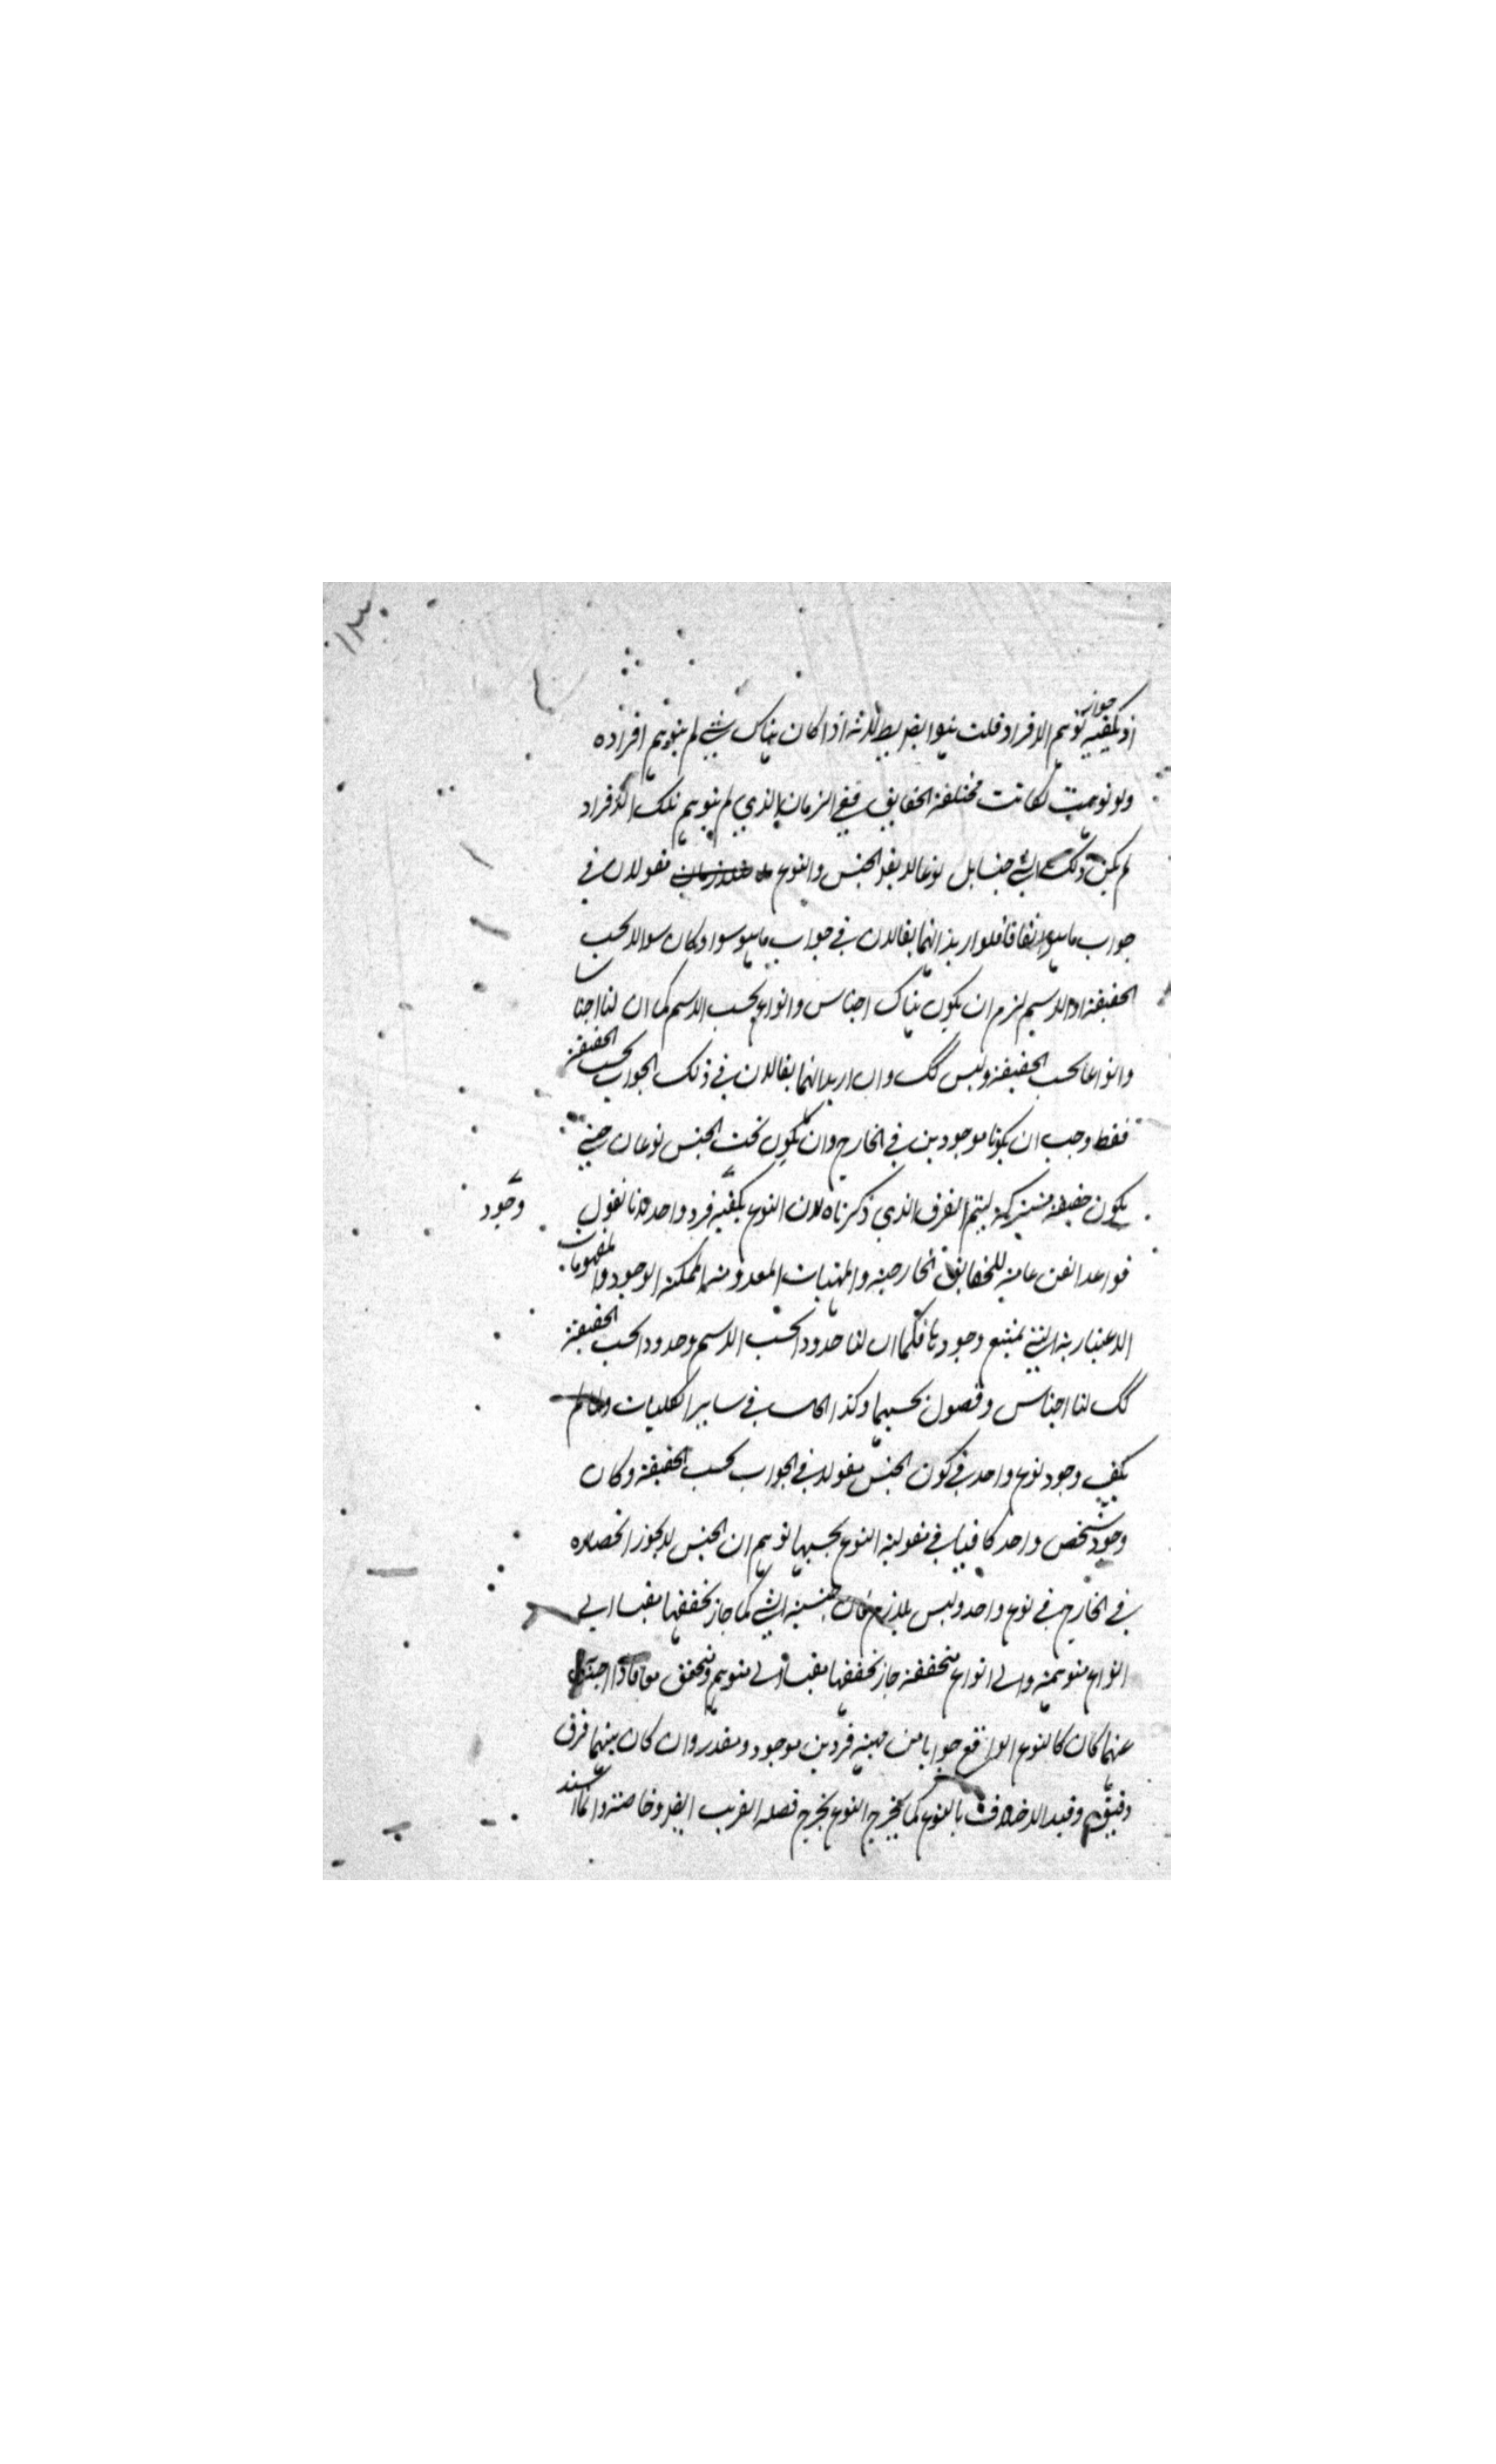 اذ يكفيه جواز توهم الافراد قلت هو ايضا بط لانه اذا كان هناك شيء لم يتوهم افراده
ولو توهمت لكانت مختلفة الحقايق ففي الزمان الذي لم يتوهم تلك الافراد
لم يكن ذلك الشيء جنسا بل نوعا لا يق الجنس والنوع مقولان في
جواب ما هو اتفاقا فلو اريد انهما يقالان في جواب ما هو سواء كان سوالا بحسب
الحقيقة او الاسم لزم ان يكون هناك اجناس وانواع بحسب الاسم كما ان لنا اجناسا
وانواعا بحسب الحقيقة وليس كك وان اريد انهما يقالان في ذلك الجواب بحسب الحقيقة
فقط وجب ان يكونا موجودين في الخارج وان يكون تحت الجنس نوعان حتى
يكون حقيقة مشتركة ليتم الفرق الذي ذكرناه لان النوع يكفيه فرد واحد لانا نقول
وجود
قواعد الفن عامة للحقايق الخارجية والمهيات المعدومة الممكنة الوجود والمفهومات
الاعتبارية التي يمتنع وجودها فكما ان لنا حدودا بحسب الاسم وحدودا بحسب الحقيقة
كك لنا اجناس وفصول بحسبهما وكذا الحال في ساير الكليات ولما لم
يكف وجود نوع واحد في كون الجنس مقولا في الجواب بحسب الحقيقة وكان
وجود شخص واحد كافيا في مقولية النوع بحسبها توهم ان الجنس لا يجوز انحصاره
في الخارج في نوع واحد وليس بلازم فان جنسية الشيء كما جاز تحققها مقيسا الى
انواع متوهمة والى انواع متحققة جاز تحققها مقيسا الى متوهم ومتحقق معا فاذا اجيب
عنهما كان كالنوع الواقع جوابا من مهية فردين موجود ومقدر وان كان بينهما فرق
دقيق وقيد الاختلاف بالنوع كما يخرج النوع يخرج فصله القريب ايض وخاصته وانما اسند